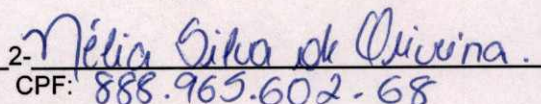 2- Nélia Silva de Oliveira.
CPF: 888.965.602-68